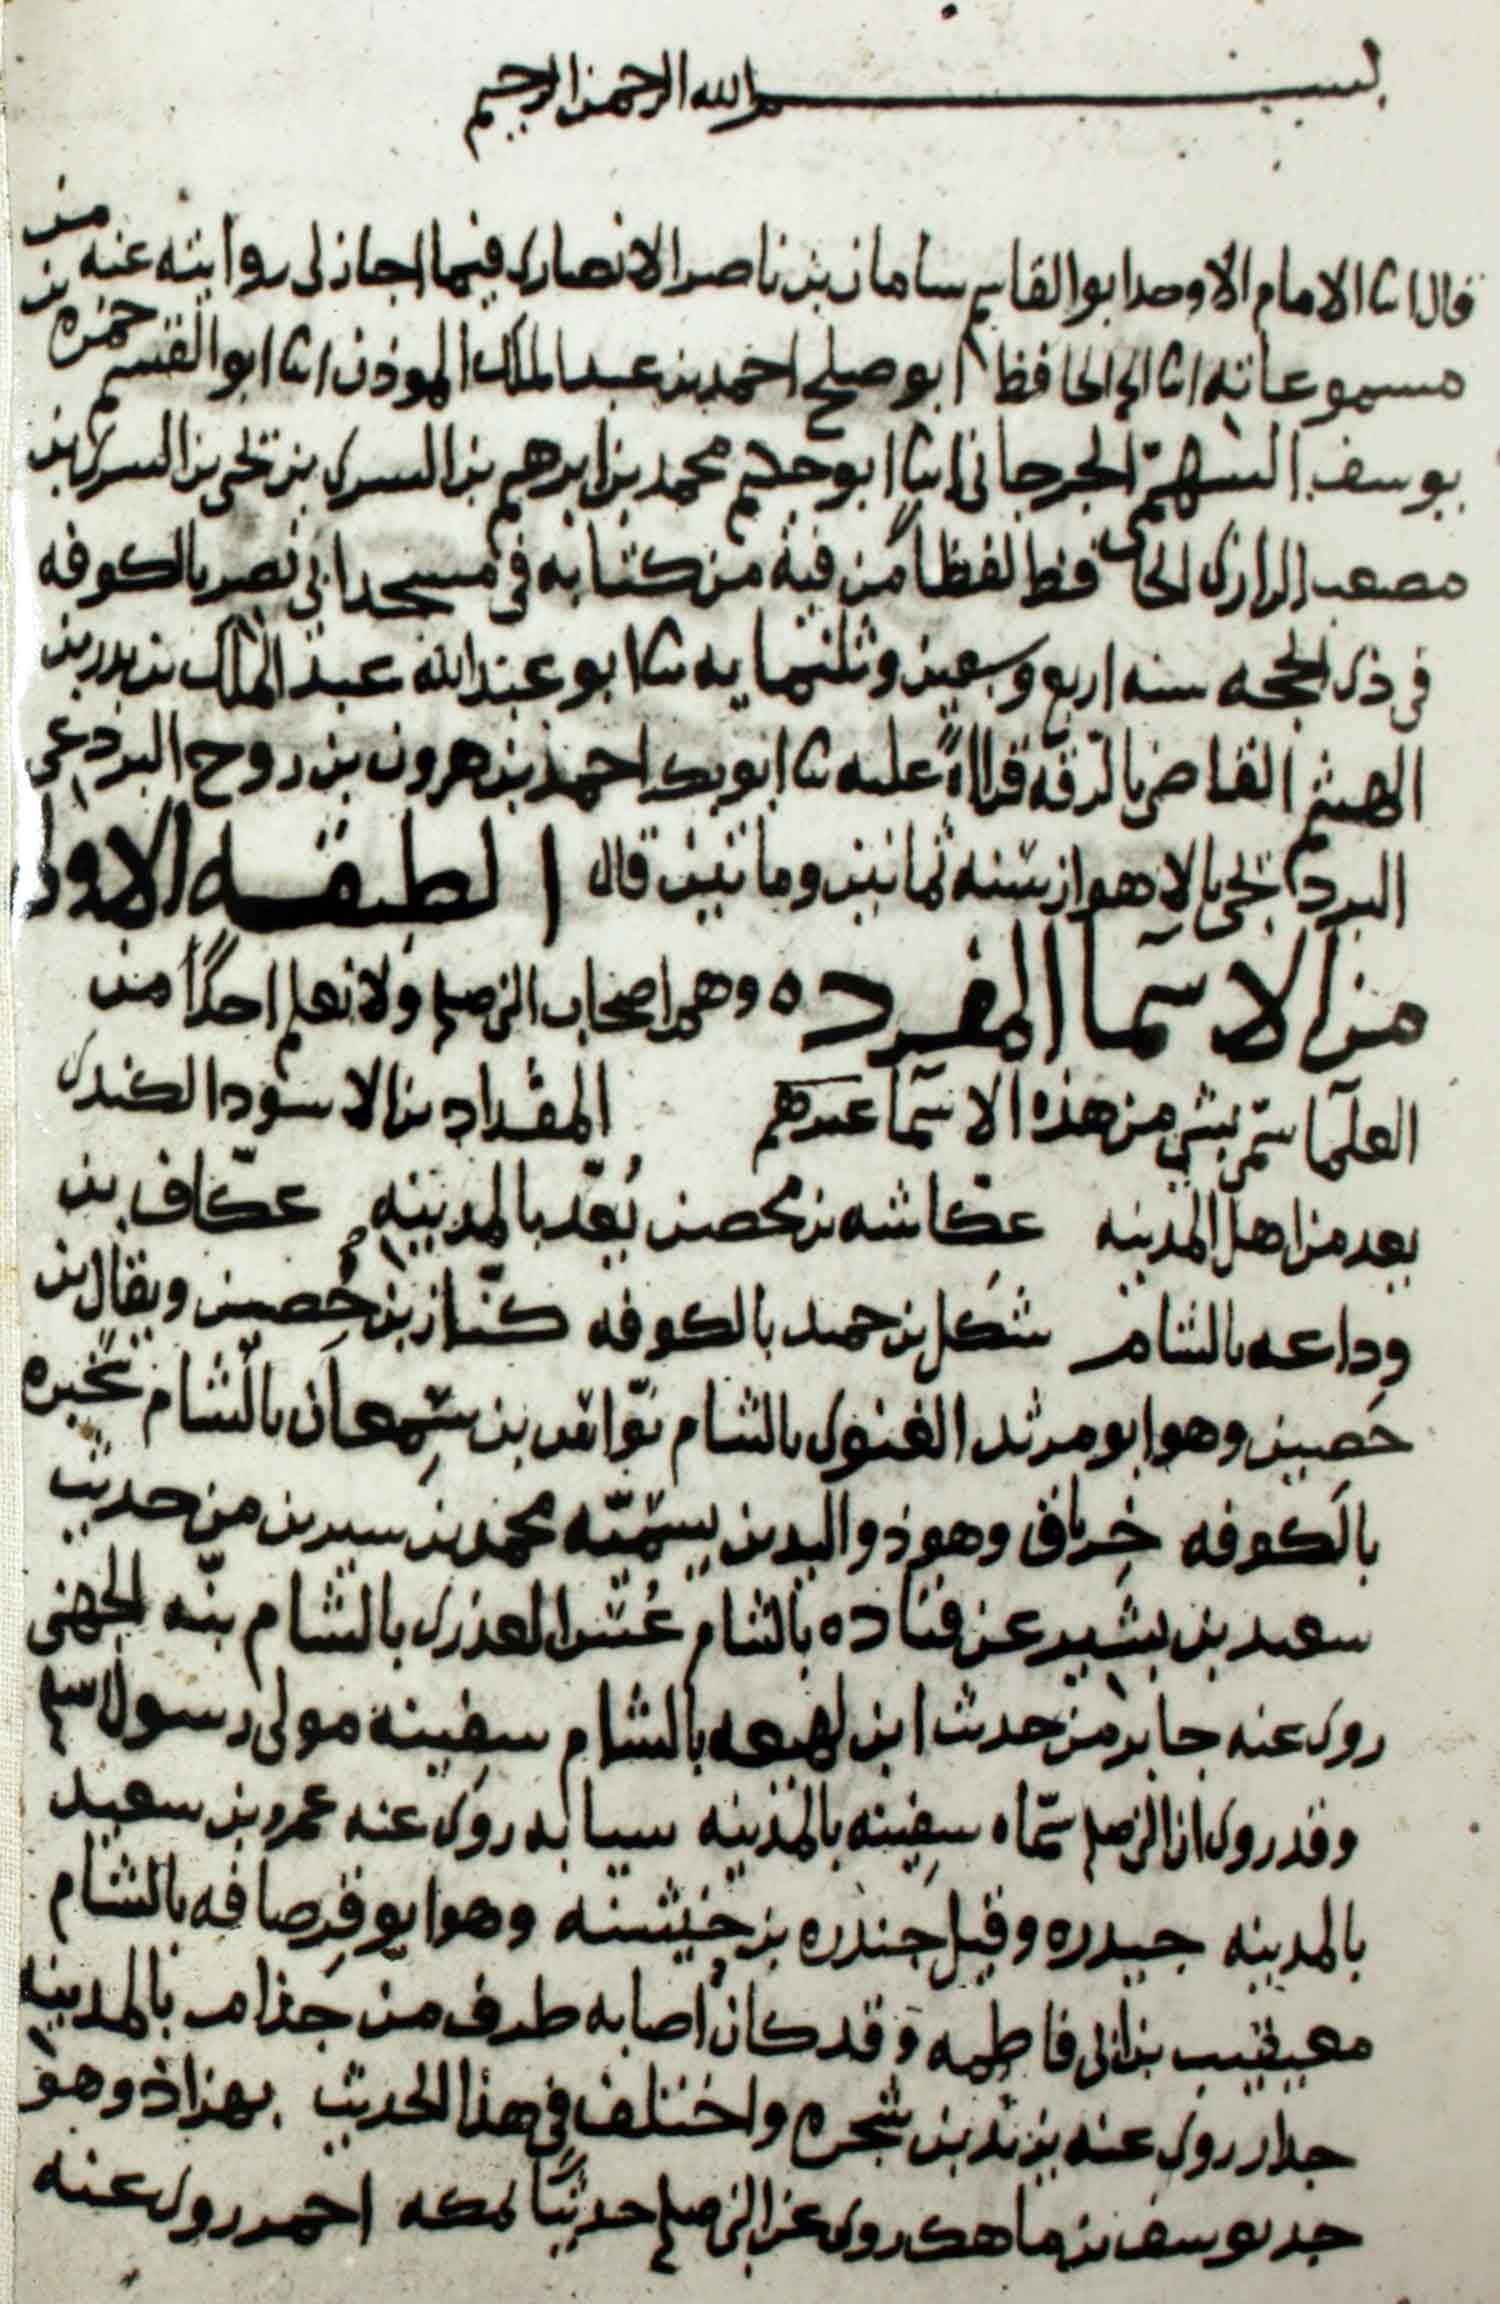 بسم الله الرحمن الرحيم
قال انا الامام الاوحد ابو القاسم سامان بن ناصر الانصارى فيما اجاز لى روايته عنه من
مسموعاته انا الحافظ ابو صلح احمد بن عبد الملك الموذن انا ابو القسم حمزه بن
يوسف السهمى الجرجانى انا ابو محمد بن ابرهيم بن السرى بن يحى بن السرى بن
مصعب الرازى الحافظ لفظا من فيه من كتابه فى مسجد ابى نصر بالكوفه
فى ذى الحجه سنه اربع وسبعين وثلثمايه ثنا ابو عبد الله عبد الملك بن بدر بن
الهيثم القاضى بالرقه قراءاةً عليه ثنا ابو بكر احمد بن هرون بن روح البردعى
البرديجى بالاهواز سنه ثمانين ومائتين قال الطبقه الاولى
من الاسما المفرده وهم اصحاب النبى صلعم ولا نعلم احدًا من
العلما سمى بشى من هذه الاسما غيرهم المقداد بن الاسود الكندى
يعد من اهل المدينه عكّاشه بن محصن يُعدّ بالمدينه عكّاف بن
وداعه بالشام شكل بن حميد بالكوفه كنّاز بن حصين ويقال بن
حصين وهو ابو مرثد الغنوى بالشام نوّاس بن سمعان بالشام سخبره
بالكوفه خرباق وهو ذو اليدين يسميّه محمد بن سيرين من حديث
سعيد بن بشير عن قتاده بالشام عُس العذرى بالشام بنّه الجهنى
روى عنه جابر من حديث ابن لهيعه بالشام سفينه مولى رسول الله
وقد روى ان النبى صلعم سمّاه سفينه بالمدينه سيابه روى عنه عمرو بن سعيد
بالمدينه حيدره وقيل جندره بن خيشنه وهو ابو قرصافه بالشام
معيقيب بن ابى فاطمه وقد كان اصابه طرف من جذام بالمدينه
جدار روى عنه يزيد بن شجره واختلف فى هذا الحديث بهزاذ وهو
جد يوسف بن ماهك روى عن النبى صلعم حديثًا بمكه احمر روى عنه